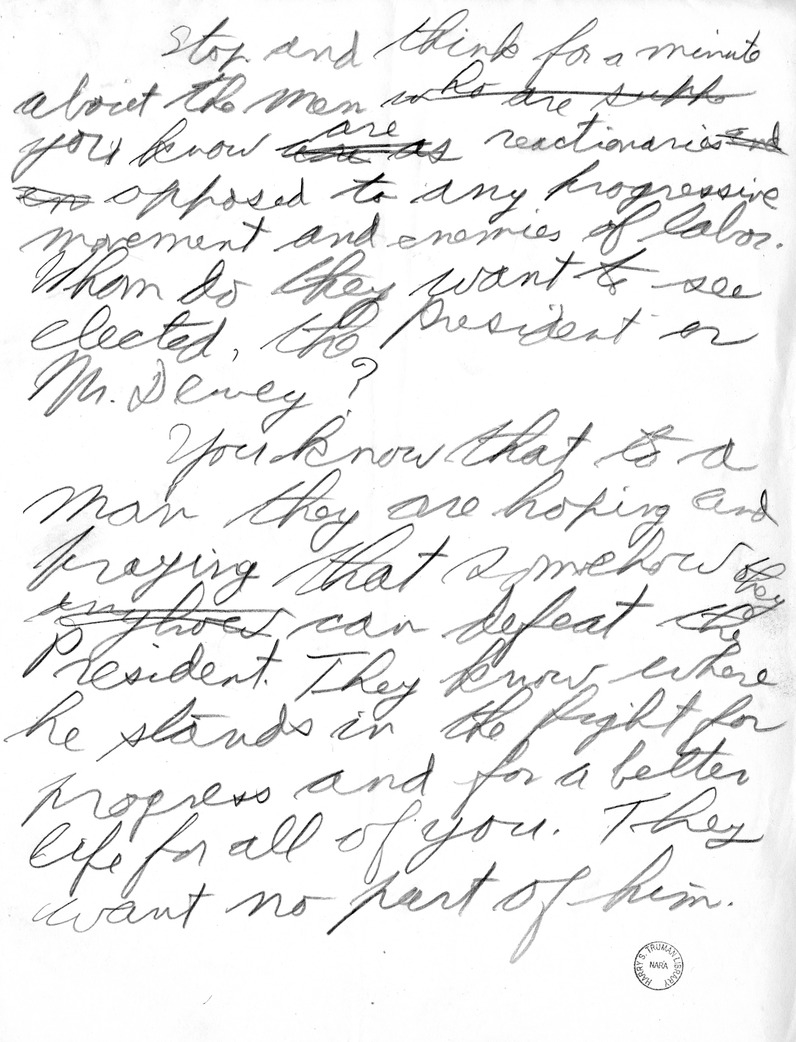 Stop and think for a minute
about the men who are suppo
you know are as are reactionaries and
an opposed to any progressive
movement and enemies of labor.
Whom do they want to see
elected, the President or
Mr. Dewey?
You know that to a
man they are hoping and
praying that somehow they
anyhow can defeat the
President. They know where
he stands in the fight for
progress and for a better
life for all of you. They
want no part of him.
HARRY S. TRUMAN LIBRARY
NARA